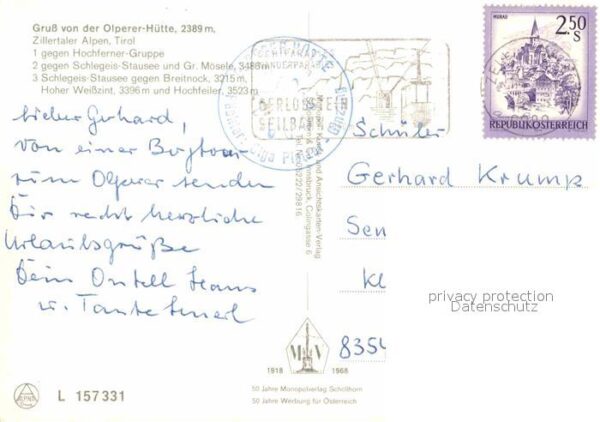 Gruß von der Olperer-Hütte, 2389 m,
Zillertaler Alpen, Tirol
1 gegen Hochferner-Gruppe
2 gegen Schlegeis-Stausee und Gr. Mösele, 3486 m
3 Schlegeis-Stausee gegen Breitnock, 3215 m,
Hoher Weißzint, 3396 m und Hochfeiler, 3523 m
lieber Gerhard,
von einer Bergtour
zum Olperer senden
Dir recht herzliche
Urlaubsgrüße
Dein Onkel Hans
u. Tante
GERLOSSTEIN
SEILBAHN
MURAU
2.50
S
REPUBLIK ÖSTERREICH
Schüler
Gerhard Krump
Sen
Kl
8354
privacy protection
Datenschutz
und Ansichtskarten-Verlag
Innsbruck,
M V
1918 1968
50 Jahre Monopolverlag Schöllhorn
50 Jahre Werbung für Österreich
L 157331